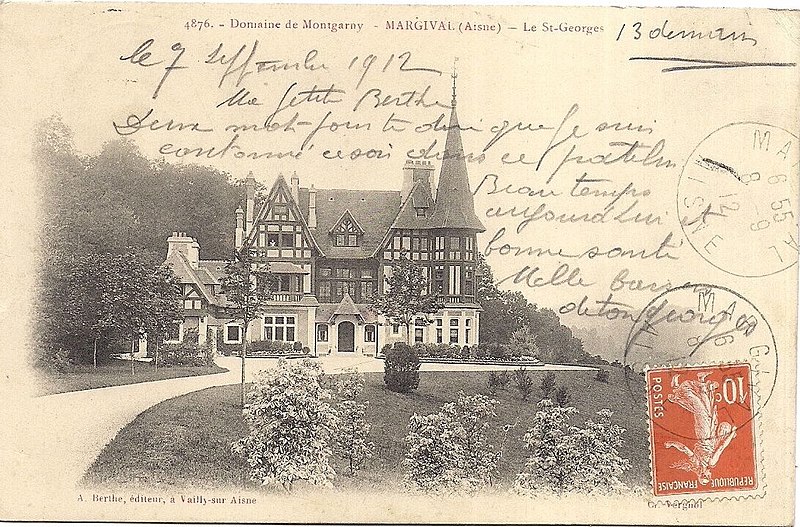 4876. - Domaine de Montgarny - MARGIVAL (Aisne) - Le St-Georges
13 demain
le 7 Septembre 1912
Ma petite Berthe
Deux mot pour te dire que je suis
cantonné ce soir dans ce patelin
Beau temps
aujourdhui et
bonne santé
Mille baisers
de ton Georges
MARGIVAL
6 55
8 -9
12
AISNE
MARG
6
8
AI
10c
POSTES
REPUBLIQUE FRANÇAISE
A. Berthe, éditeur, à Vailly-sur Aisne
Vergnol